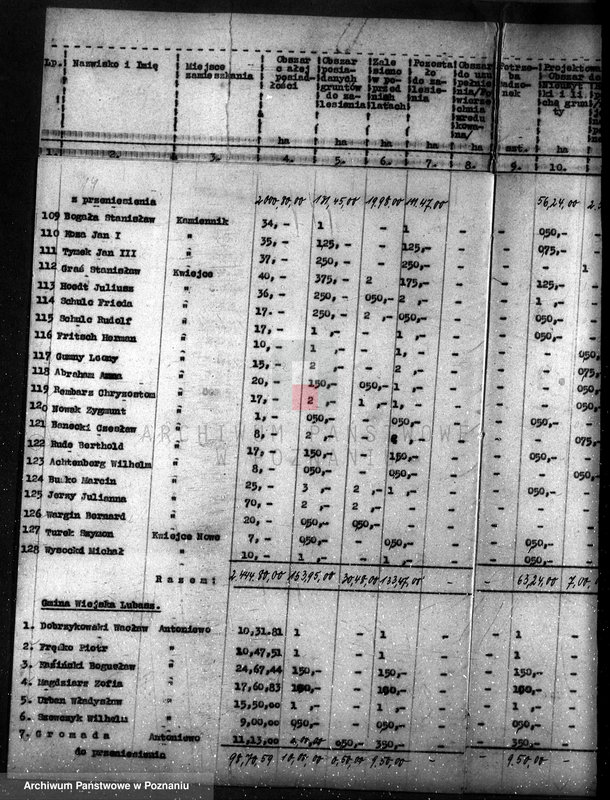 Lp. Nazwisko i Imię Miejsce zamieszkania Obszar całej posiadłości Obszar posiadanych gruntów do zalesienia Zalesiono w poprzednich latach Pozostało do zalesienia
ha ha ha ha ha szt. ha
1. 2. 3. 4. 5. 6. 7. 8. 9. 10.
z przeniesienia
109 Bogała Stanisław Kamiennik 34,- 1 - 1 - - 050,-
110 Koza Jan I " 35,- 125,- - 125,- - - 075,-
111 Tymek Jan III " 37,- 250,- - 250,- - - -
112 Graś Stanisław Kwiejce 40,- 375,- 2 175,- - - 125,-
113 Hoedt Juliusz " 36,- 250,- 050,- 2 ,- - - 1 ,-
114 Schulc Frieda " 17.- 250,- 2 ,- 050,- - - 050,-
115 Schulc Rudolf " 17,- 1 ,- - 1 ,- - - 050,-
116 Fritsch Herman " 10,- 1 ,- - 1, - - - 050,-
117 Gumny Leony " 15,- 2 ,- - 2 ,- - - - 075,-
118 Abraham Anna " 20,- 150,- 050,- 1 - - - 050,-
119 Rembarz Chryzostom " 17,- 2 ,- 1 ,- 1, - - - 050,-
120 Nowak Zygmunt " 1,- 050,- - 050,- - - 050,-
121 Banecki Czesław " 8,- 2 ,- - - - - 075,-
122 Rude Berthold " 17,- 150,- - 150,- - - 050,-
123 Achtenberg Wilhelm " 8,- 050,- - 050,- - - - 050,-
124 Butko Marcin " 25,- 3 ,- 2 ,- 1 ,- - - 050,-
125 Jerzy Julianna " 70,- 2 ,- 2 ,- - - - -
126 Wargin Bernard " 20,- 050,- 050,- - - - -
127 Turek Szymon Kwiejce Nowe 7,- 050,- - 050,- - - 050,-
128 Wysocki Michał " 10,- 1 ,- - 1 ,- - - 050,-
Razem: 2.444.80,00 163,95,00 20,48,00 133,47,00 - - 63,24,00 7,00,00
Gmina Wiejska Lubasz.
1. Dobrzykowski Wacław Antoniewo 10,31.81 1 - 1 - - 1
2. Frącko Piotr " 10,47,51 1 - 1 - - 1
3. Kasiński Bogusław " 24,67,44 150,- - 150,- - - 150,-
4. Magdziarz Zofia " 17,60,83 100,- - 100,- - - 100,-
5. Urban Władysław " 15,50,00 1 ,- - 1 ,- - - 1 ,-
6. Szewczyk Wilhelm " 9,00,00 050,- - 050,- - - 050,-
7. Gromada Antoniewo 11,13,00 050,- 350,- - - 350,-
do przeniesienia 98,70,59 10,00,00 0,50,00 9,50,00 9,50,00
ARCHIWUM PAŃSTWOWE
W POZNANIU
Archiwum Państwowe w Poznaniu